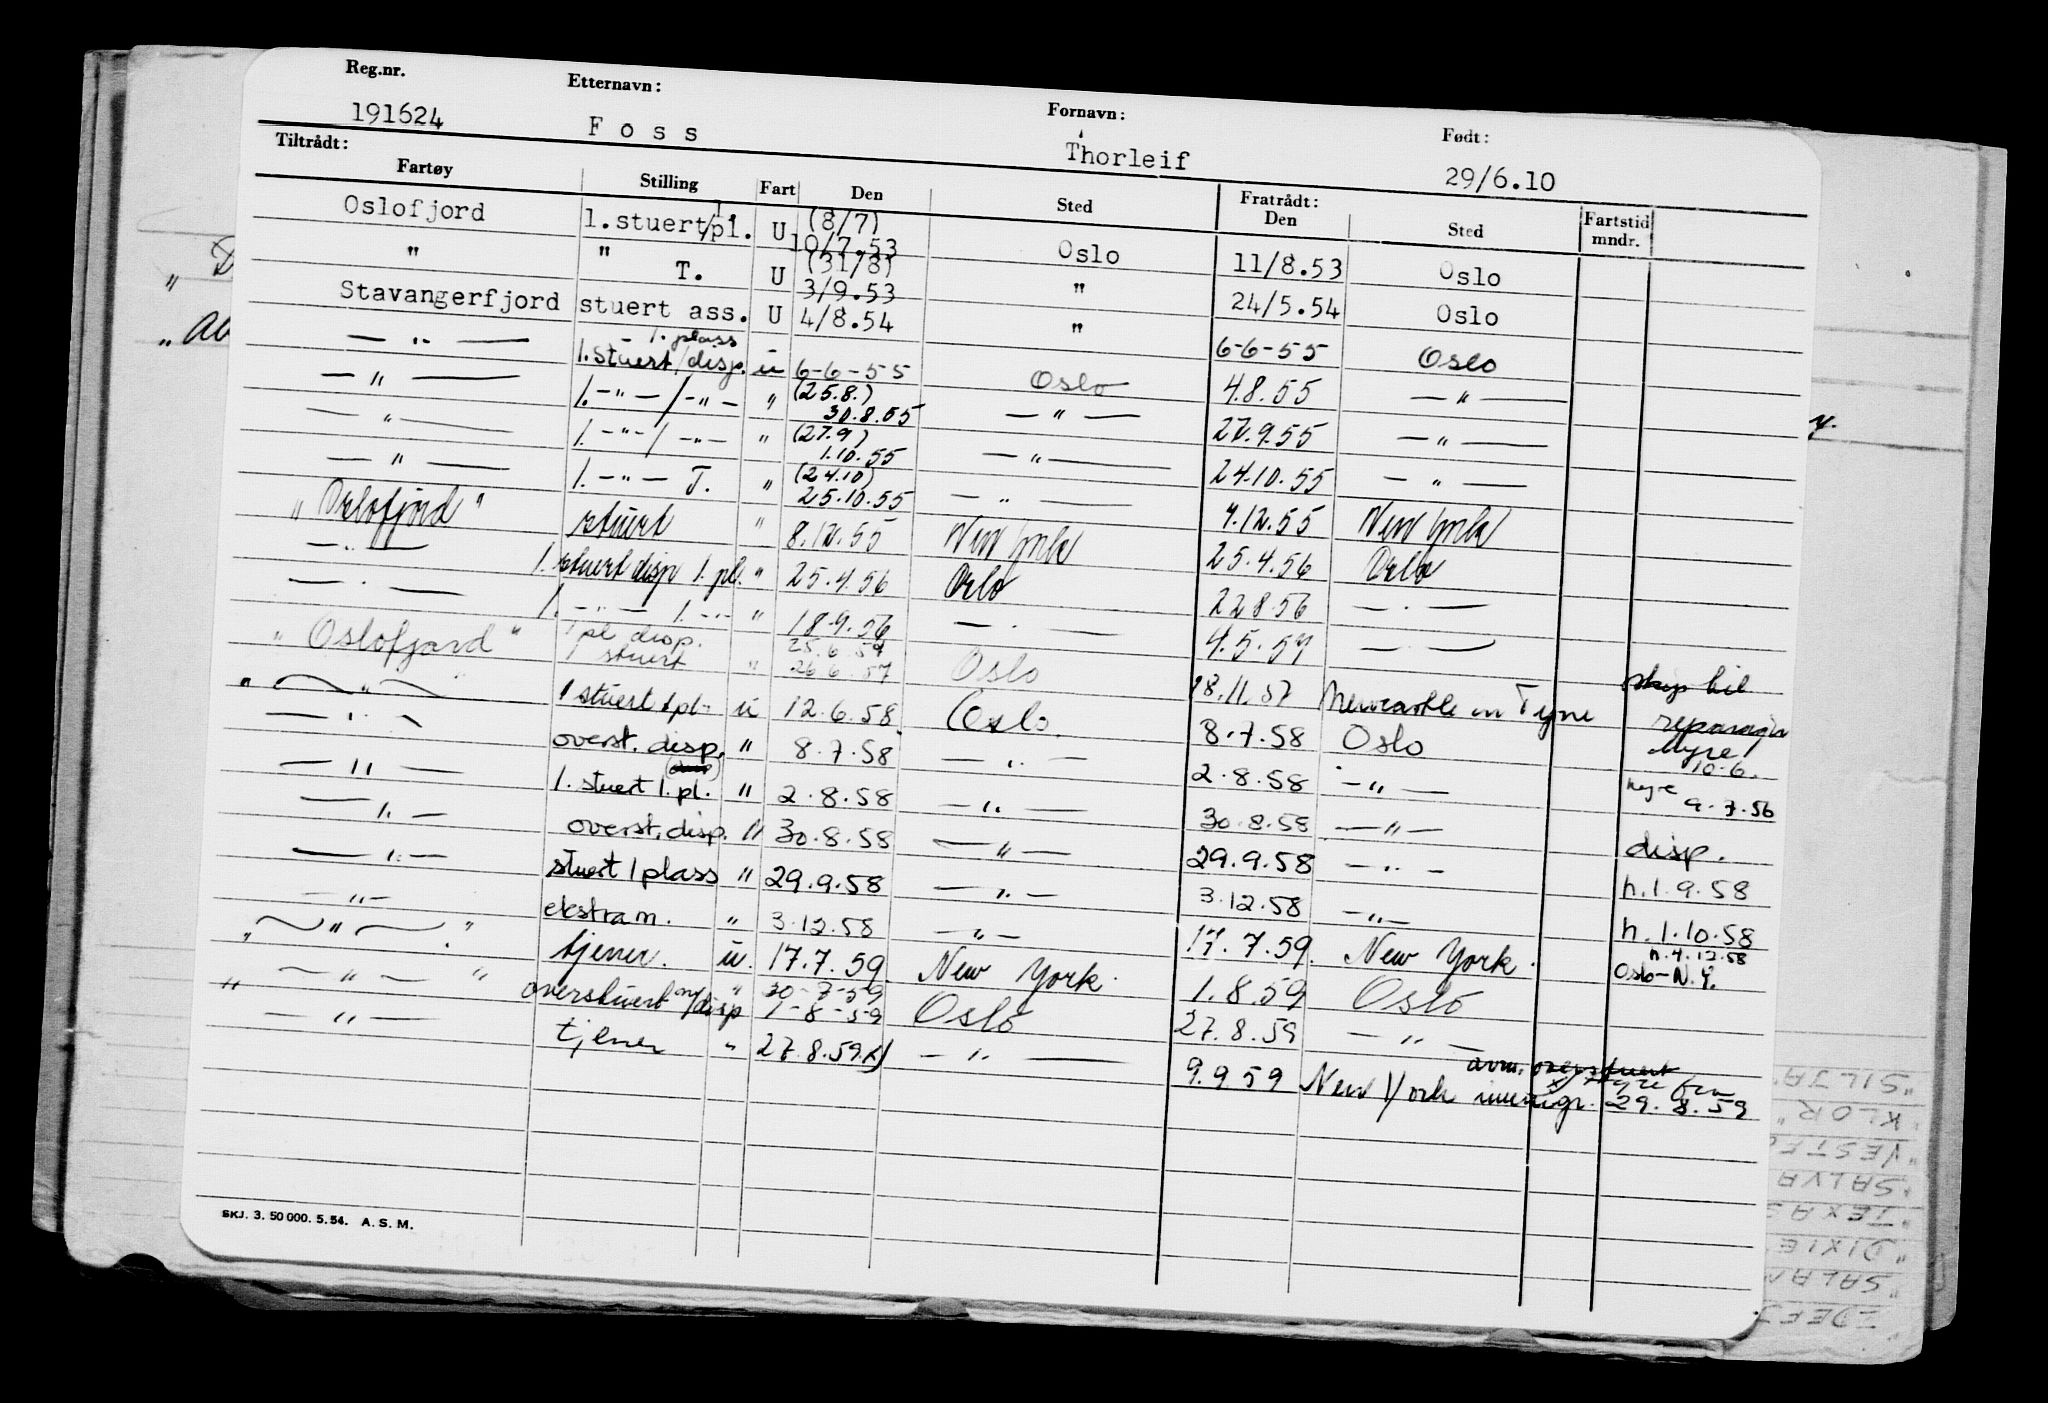 Reg.nr. Etternavn: Fornavn: Født:
191624 Foss Thorleif 29/6.10
Tiltrådt: Fratrådt:
Fartøy Stilling Fart Den Sted Den Sted Fartstid mndr.
Oslofjord 1.stuert/1.pl. U (8/7) 10/7.53 Oslo 11/8.53 Oslo
" " T. U (31/8) 3/9.53 " 24/5.54 Oslo
Stavangerfjord stuert ass. U 4/8.54 " 6-6-55 Oslo
— " — 1. stuert/disp. 1. plass u 6-6-55 Oslo 4.8.55 — " —
— " — 1. — " — / — " — " (25.8.) 30.8.55 — " — 27.9.55 — " —
— " — 1. — " — / — " — " (27.9) 1.10.55 — " — 24.10.55 — " —
— " — 1. — " — T. " (24.10) 25.10.55 — " — 4.12.55 New York
"Oslofjord" stuert " 8.12.55 New York 25.4.56 Oslo
— " — 1. stuert disp 1. pl. " 25.4.56 Oslo 22.8.56 — " —
— " — 1. — " — 1. — " — " 18.9.56 — " — 4.5.57 — " —
"Oslofjord" 1 pl disp. 1 stuert " 25.6.57 26.6.57 Oslo 18.11.57 Newcastle on Tyne skip til reparasjon
" — " — " 1 stuert 1 pl. u 12.6.58 Oslo. 8.7.58 Oslo hyre 10.6.
— " — overst. disp. " 8.7.58 — " — 2.8.58 — " — hyre 9.7.56
— " — 1. stuert 1. pl. " 2.8.58 — " — 30.8.58 — " — disp.
— " — overst. disp. " 30.8.58 — " — 29.9.58 — " — h. 1.9.58
— " — stuert 1 plass " 29.9.58 — " — 3.12.58 — " — h. 1.10.58
— " — ekstra m. " 3.12.58 — " — 17.7.59 New York. h. 4.12.58 Oslo-N.Y.
" — " — " tjener. u. 17.7.59 New York. 1.8.59 Oslo
" — " — " overstuert m/disp " 30-7-59 1-8-59 Oslo 27.8.59 — " —
— " — tjener " 27.8.59.x) — " — 9.9.59 New York immigr. avm. overstuert x) hyre fra 29.8.59
SKJ. 3. 50 000. 5. 54. A. S. M.
"SILJA
"KLOR"
"SALVA
"TEXAS
"DIXIE
"SALAM